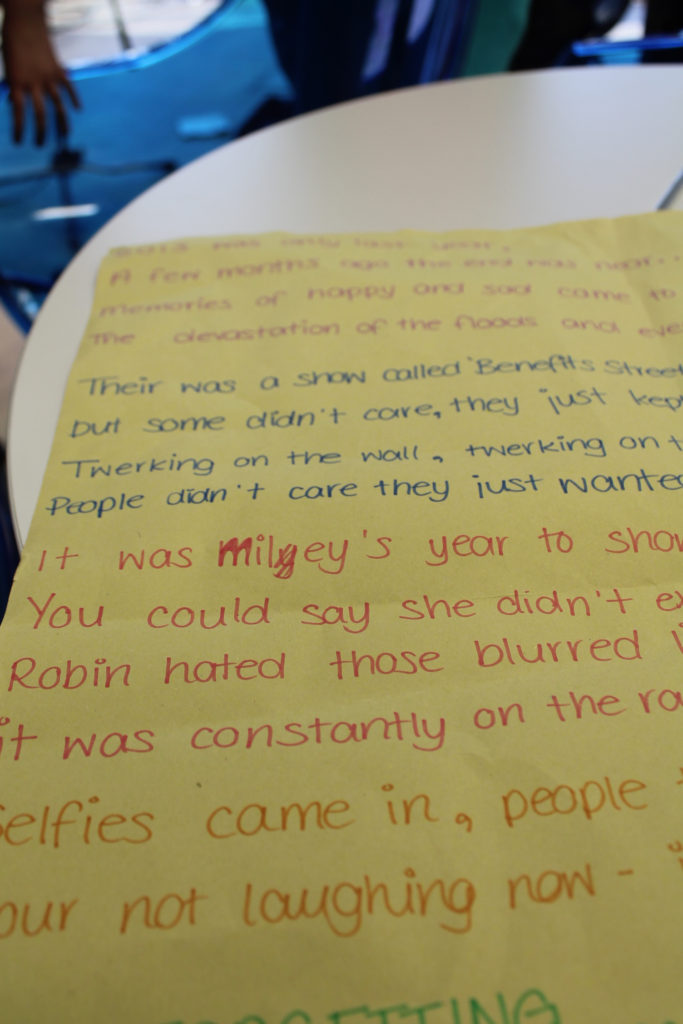 2013 was only last year,
A few months ago the end was near..
memories of happy and sad came to
The devastation of the floods and eve
Their was a show called 'Benefits Street
but some didn't care, they just kept
Twerking on the wall, twerking on t
People didn't care they just wante
It was Miley's year to show
You could say she didn't e
Robin hated those blurred li
it was constantly on the ra
Selfies came in, people t
our not laughing now - i